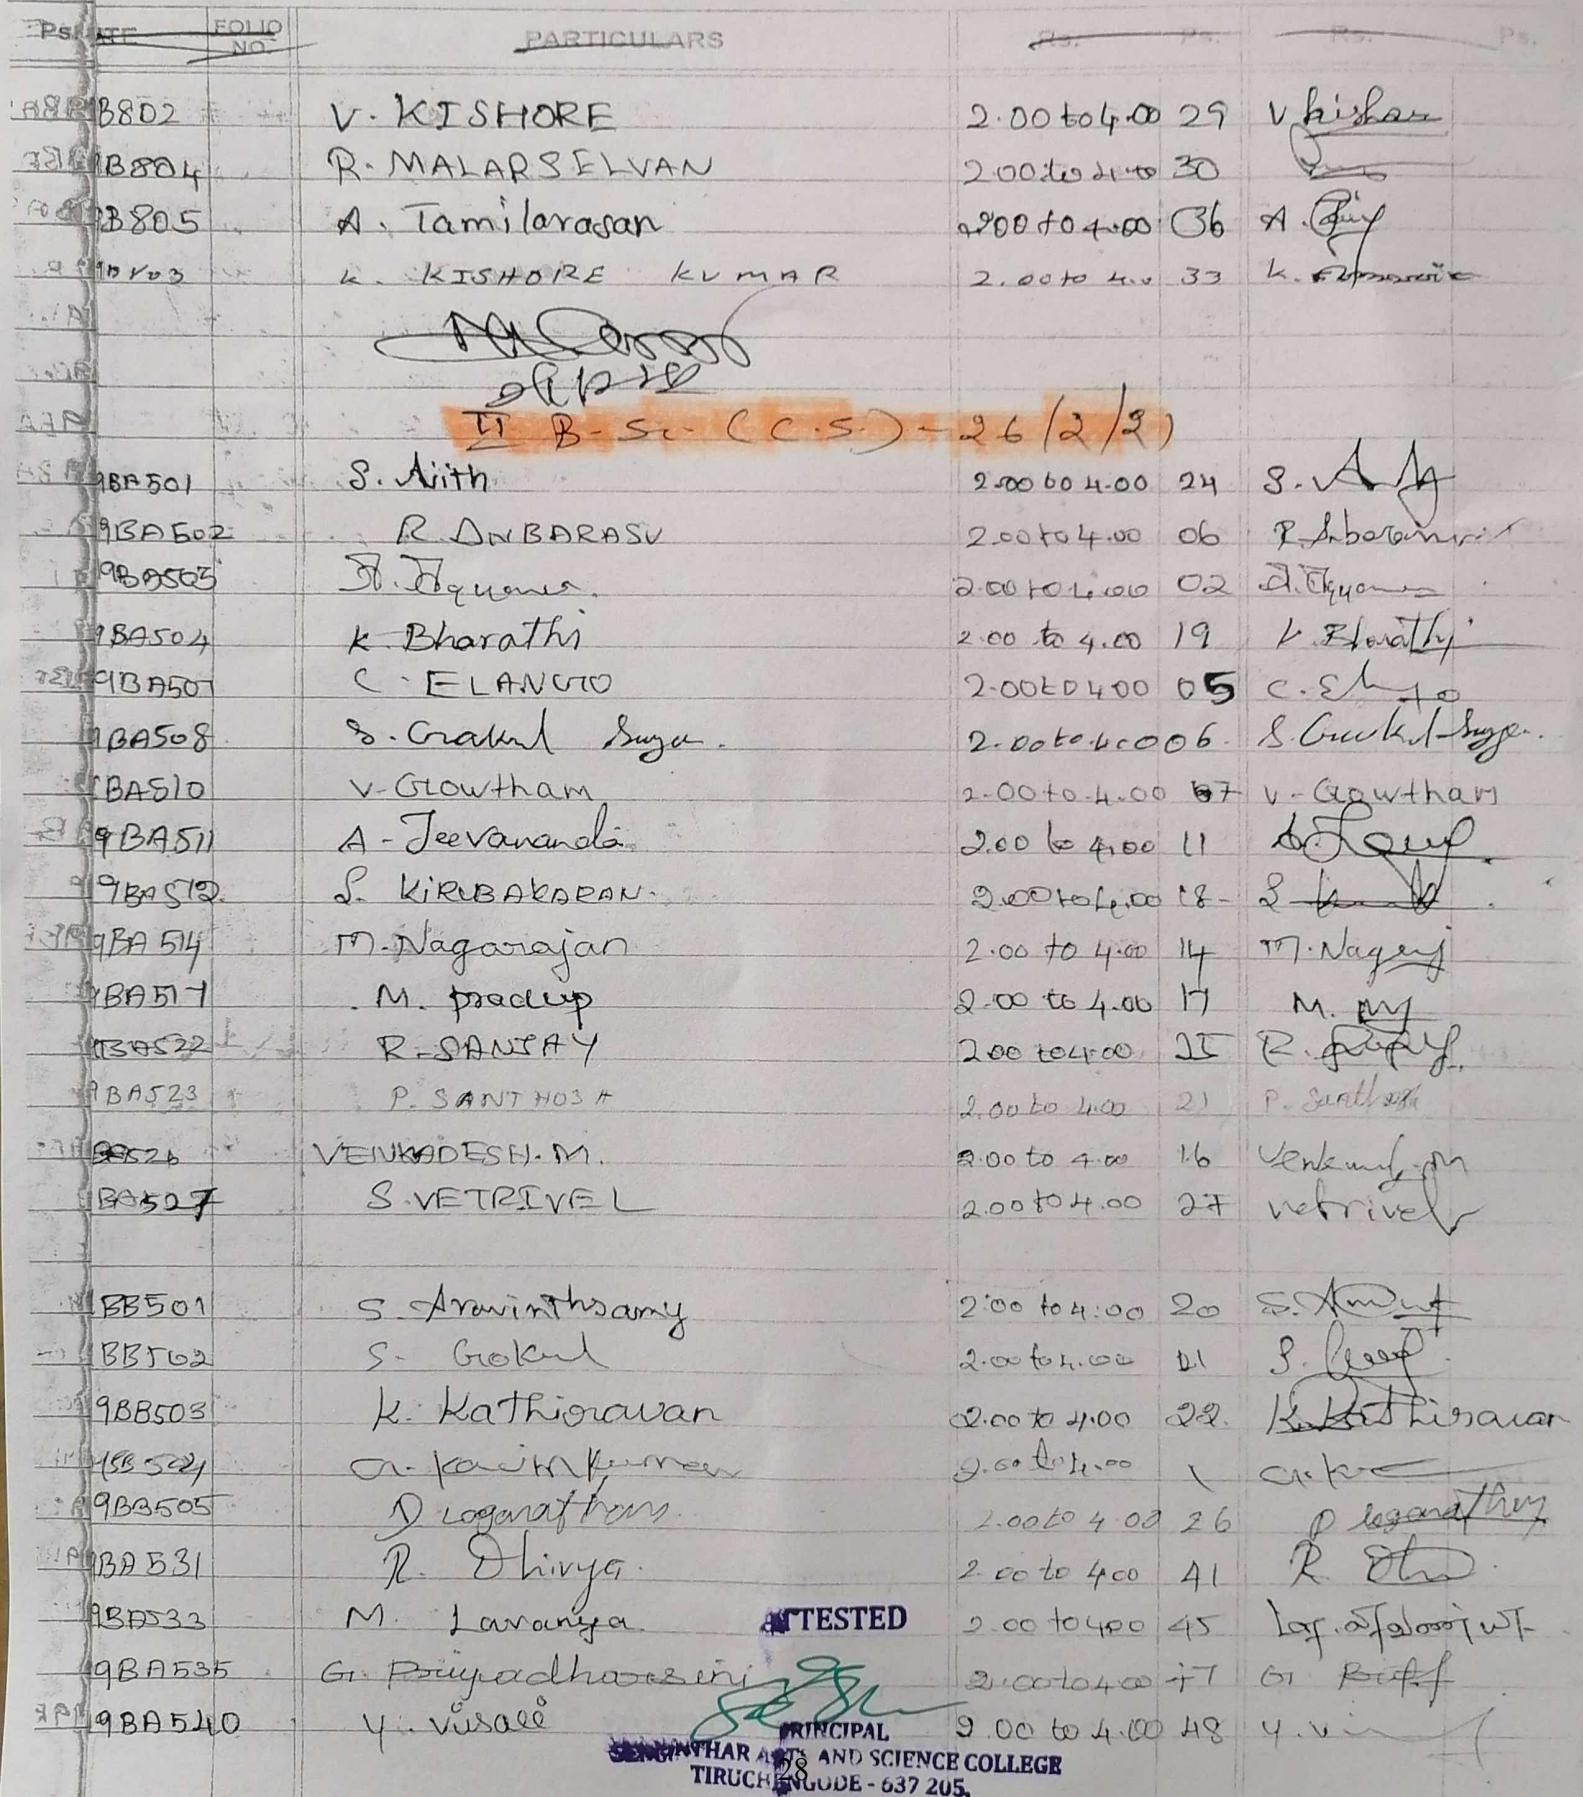 FOLIO NO. PARTICULARS Rs. Ps. Rs. Ps.
B802 V. KISHORE 2.00 to 4.00 29 V kishor
9B804 R. MALARSELVAN 2.00 to 4.00 30
9B805 A. Tamilarasan 2.00 to 4.00 36 A.
K. KISHORE KUMAR 2.00 to 4.0 33 K.
II B.Sc. (C.S.) - 26/2/2
9BA501 S. Ajith 2.00 to 4.00 24 S.
9BA502 R. ANBARASU 2.00 to 4.00 06
9BA503 2.00 to 4.00 02
9BA504 K. Bharathi 2.00 to 4.00 19 K. Bharathi
9BA507 C. ELANGO 2.00 to 4.00 05 C.
9BA508 S. Gokul Surya. 2.00 to 4.00 06. S. Gokul Surya.
9BA510 V. Gowtham 2.00 to 4.00 07 V. Gowtham
9BA511 A. Jeevananda 2.00 to 4.00 11
9BA512 S. KIRUBAKARAN. 2.00 to 4.00 18
9BA514 M. Nagarajan 2.00 to 4.00 14 M. Nagaraj
9BA517 M. Pradeep 2.00 to 4.00 17 M.
BA522 R. SANJAY 2.00 to 4.00 25 R.
9BA523 P. SANTHOSH 2.00 to 4.00 21 P. Santhosh
BA526 VENKADESH. M. 2.00 to 4.00 16
BA527 S. VETRIVEL 2.00 to 4.00 27 Vetrivel
BB501 S. Aravinthsamy 2.00 to 4:00 20 S.
BB502 S. Gokul 2.00 to 4.00 21 S.
9BB503 K. Kathiravan 2.00 to 4.00 22. K. Kathiravan
2.00 to 4.00
9BB505 D Loganathan. 2.00 to 4.00 26
9BA531 R. Dhivya. 2.00 to 4.00 41 R.
9BA533 M. Lavanya. 2.00 to 4.00 45
ATTESTED
9BA535 G. Priyadharsini 2.00 to 4.00 47 G.
9BA540 Y. Visali 2.00 to 4.00 48 Y.
PRINCIPAL
SENGUNTHAR ARTS AND SCIENCE COLLEGE
TIRUCHENGODE - 637 205.
28